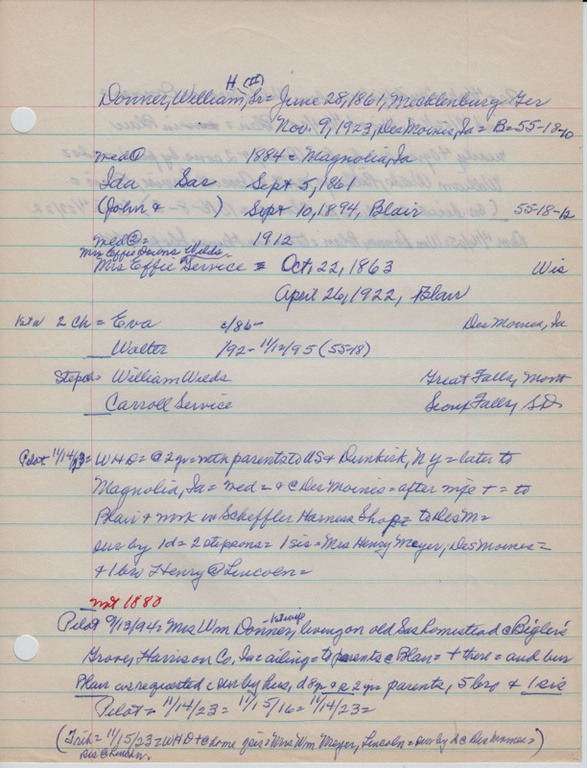 H (II)
Donner, William, Sr= June 28, 1861, Mecklenburg Ger
Nov. 9, 1923, Des Moines, Ia = B=55-18-10
med① 1884 @ Magnolia, Ia
Ida Sas Sept 5, 1861
(John & ) Sept 10, 1894, Blair 55-18-12
med②= 1912
Mrs Effie Downs Wilds
Mrs Effie Service = Oct, 22, 1863 Wis
April 26, 1922, Blair
1st W 2 ch = Eva c/86- Des Moines, Ia
Walter /92- 11/12/95 (55-18)
Stepch= William Wilds Great Falls, Mont
Carroll Service Sioux Falls, SD
Pilot 11/14/23= WHD= @ 2 yr= with parents to US & Dunkirk, NY = later to
Magnolia, Ia = med = & @ Des Moines = after wife + = to
Blair & work in Scheffler Harness Shop = to Des M=
sur by 1d = 2 stepsons = 1 sis = Mrs Henry Meyer, Des Moines =
& 1 bro Henry @ Lincoln =
not 1880
1st wife
Pilot 9/13/94= Mrs Wm Donner, living on old Sas homestead @ Bigler's
Grove, Harrison Co, Ia = ailing = to parents @ Blair = + there = and bur
Blair as requested = sur by hus, d 8 yr & s 2 yr = parents, 5 bro & 1 sis
Pilot = 11/14/23 = 11/15/16 = 11/14/23 =
(Trib = 11/15/23 = WHD + @ home of sis = Mrs Wm Meyer, Lincoln = sur by d @ Des Moines =)
sis @ Lincoln.